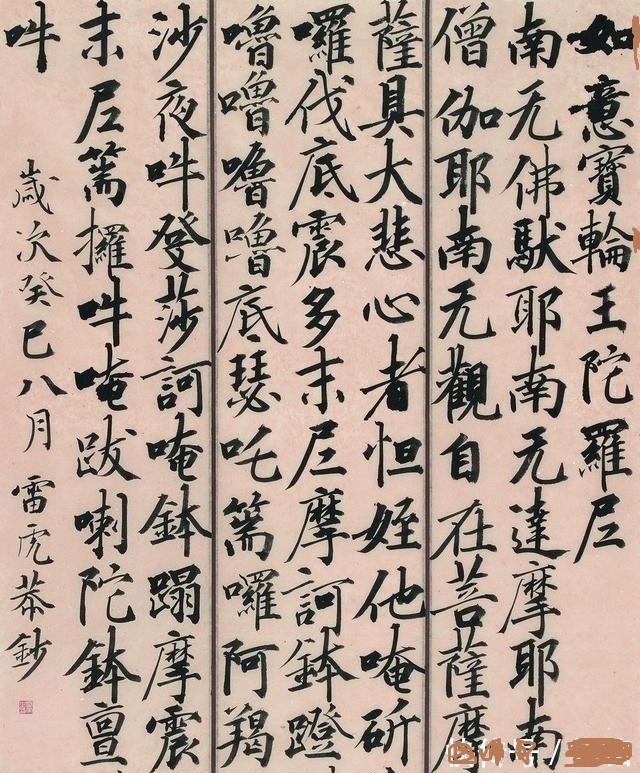 如意寶輪王陀羅尼
南无佛馱耶南无達摩耶南
僧伽耶南无觀自在菩薩摩
薩具大悲心者怛姪他唵斫
囉伐底震多末尼摩訶鉢蹬
嚕嚕嚕嚕底瑟吒篅囉阿羯
沙夜吽發莎訶唵鉢蹋摩震
末尼篅攞吽唵跋喇陀鉢亶
吽
歲次癸巳八月雷虎恭鈔